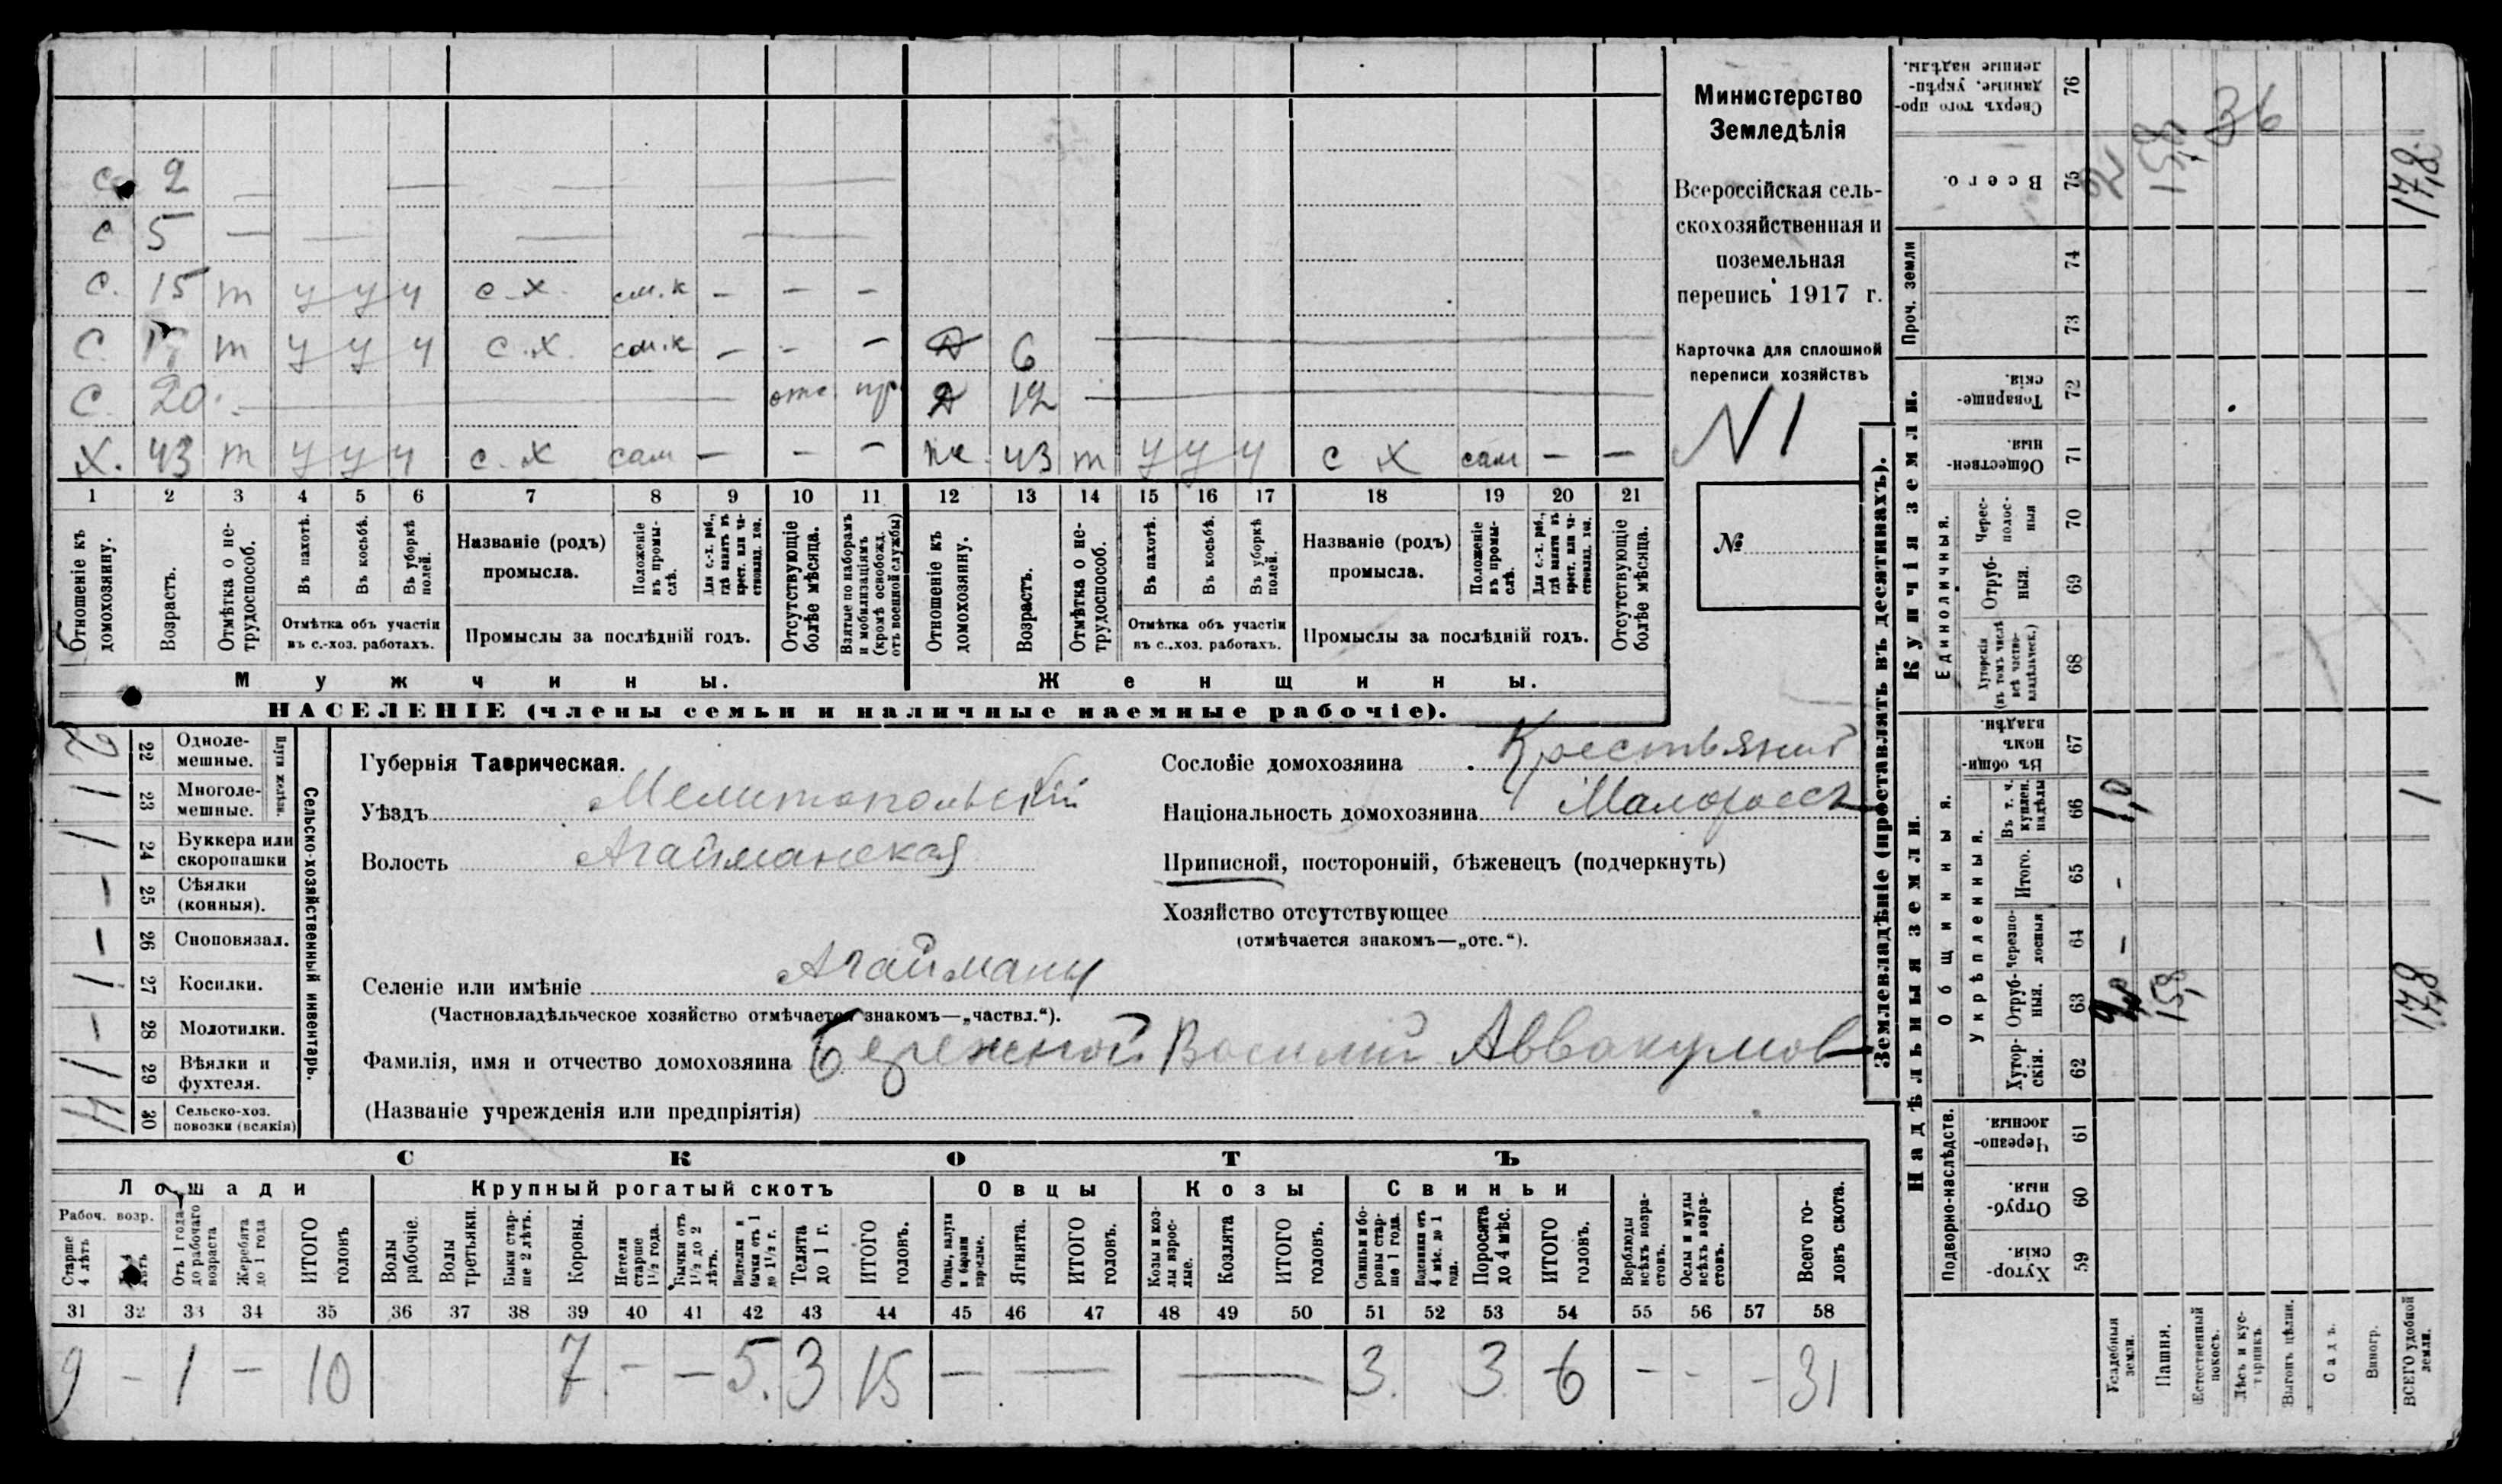 Министерство
Земледѣлія
Всероссійская сель-
скохозяйственная и
поземельная
перепись 1917 г.
Карточка для сплошной
переписи хозяйствъ
N 1
№
с 2 — — — —
с 5 — — — —
с. 15 т у у у с.х. см.к — — —
с. т у у у с.х. см.к — — — 6
с. 20 — отс пр 12
х. 43 т у у у с.х сам — — — же. 43 т у у у с х сам — —
1 2 3 4 5 6 7 8 9 10 11 12 13 14 15 16 17 18 19 20 21
Отношеніе къ домохозяину.
Возрастъ.
Отмѣтка о не-трудоспособ.
Въ пахотѣ.
Въ косьбѣ.
Въ уборкѣ полей.
Отмѣтка объ участіи
въ с.-хоз. работахъ.
Названіе (родъ)
промысла.
Положеніе въ промы-слѣ.
Для с.-х. раб., гдѣ занятъ въ крест. или ча-стновлад. хоз.
Промыслы за послѣдній годъ.
Отсутствующіе болѣе мѣсяца.
Взятые по наборамъ и мобилизаціямъ (кромѣ освобожд. отъ военной службы)
Отношеніе къ домохозяину.
Возрастъ.
Отмѣтка о не-трудоспособ.
Въ пахотѣ.
Въ косьбѣ.
Въ уборкѣ полей.
Отмѣтка объ участіи
въ с..хоз. работахъ.
Названіе (родъ)
промысла.
Положеніе въ промы-слѣ.
Для с.-х. раб., гдѣ занята въ крест. или ча-стновлад. хоз.
Промыслы за послѣдній годъ.
Отсутствующіе болѣе мѣсяца.
Мужчины.
Женщины.
НАСЕЛЕНІЕ (члены семьи и наличные наемные рабочіе).
Сельско-хозяйственный инвентарь.
Плуги желѣзн.
2 22 Одноле-мешные.
1 23 Многоле-мешные.
1 24 Буккера или скоропашки
— 25 Сѣялки (конныя).
— 26 Сноповязал.
1 27 Косилки.
— 28 Молотилки.
1 29 Вѣялки и фухтеля.
4 30 Сельско-хоз. повозки (всякія)
Губернія Таврическая.
Уѣздъ Мелитопольскій
Волость Агайманская
Сословіе домохозяина Крестьянин
Національность домохозяина Малороссъ
Приписной, посторонній, бѣженецъ (подчеркнуть)
Хозяйство отсутствующее
(отмѣчается знакомъ—„отс.“).
Селеніе или имѣніе Агайманы
(Частновладѣльческое хозяйство отмѣчается знакомъ—„частвл.“).
Фамилія, имя и отчество домохозяина Бережной Василий Аввакумов
(Названіе учрежденія или предпріятія)
СКОТЪ
Лошади
Крупный рогатый скотъ
Овцы
Козы
Свиньи
Рабоч. возр.
Старше 4 лѣтъ
Отъ 1 года до рабочаго возраста
Жеребята до 1 года
ИТОГО головъ
Волы рабочіе.
Волы третьяки.
Быки стар-ше 2 лѣтъ.
Коровы.
Нетели старше 1½ года.
Бычки отъ 1½ до 2 лѣтъ.
Подтелки и бычки отъ 1 до 1½ г.
Телята до 1 г.
ИТОГО головъ.
Овцы, валухи и бараны взрослые.
Ягнята.
ИТОГО головъ.
Козы и коз-лы взрос-лые.
Козлята
ИТОГО головъ.
Свиньи и бо-ровы стар-ше 1 года.
Подсвинки отъ 4 мѣс. до 1 года.
Поросята до 4 мѣс.
ИТОГО головъ.
Верблюды всѣхъ возра-стовъ.
Ослы и мулы всѣхъ возра-стовъ.
Всего го-ловъ скота.
31 32 33 34 35 36 37 38 39 40 41 42 43 44 45 46 47 48 49 50 51 52 53 54 55 56 57 58
9 — 1 — 10 7 — — 5. 3 15 — — — 3. 3 6 — — — 31
Землевладѣніе (проставлять въ десятинахъ).
Надѣльныя земли.
Купчія земли.
Проч. земли
Подворно-наслѣдств.
Общинныя.
Укрѣпленныя.
Единоличныя.
Сверхъ того про-данные, укрѣп-ленные надѣлы. 76 36
Всего. 75 2 15,8 17,8
74
73
Товарище-скія. 72
Обществен-ныя. 71
Черес-полос-ныя 70
Отруб-ныя. 69
Хуторскія (въ томъ числѣ всѣ частно-владѣльческ.) 68
Въ общи-номъ владѣн. 67
Въ т. ч. куплен. надѣлы 66 1,0 1
Итого. 65 —
Черезпо-лосныя 64 —
Отруб-ныя. 63 15,8 17,8
Хутор-скія. 62
Черезпо-лосныя. 61
Отруб-ныя. 60
Хутор-скія. 59
Усадебныя земли.
Пашня.
Естественный покосъ.
Лѣсъ и кус-тарникъ.
Выгонъ цѣлин.
Садъ.
Виногр.
ВСЕГО удобной земли.